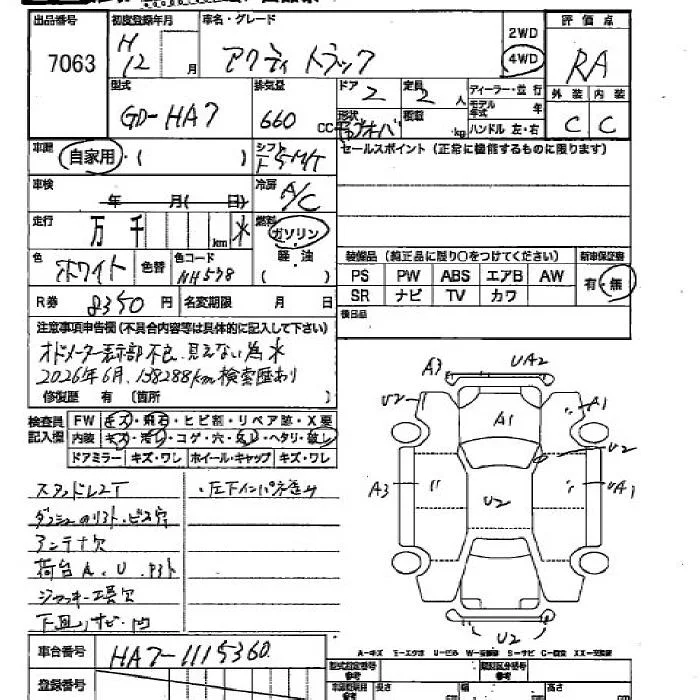 出品番号 初度登録年月 車名・グレード 2WD 評価点
7063 H12 月 アクティ トラック 4WD RA
型式 排気量 ドア 定員 ディーラー・並行 外装 内装
GD-HA7 660 CC 2 2 人 モデル年式 年 C C
形状 積載 kg ハンドル 左・右
車歴 自家用・( ) シフト 5MT セールスポイント (正常に機能するものに限ります)
車検 年 月( 日) 冷房 A/C
走行 万 千 km 燃料 ガソリン
軽・油
( )
色 ホワイト 色替 色コード NH578
装備品 (純正品に限り○をつけてください) 新車保証書
PS PW ABS エアB AW 有・無
SR ナビ TV カワ
R券 8350 円 名変期限 月 日
後日品
注意事項申告欄 (不具合内容等は具体的に記入して下さい)
オドメーター表示部不良 見えない為
2026年6月 138288km 検索歴あり
修復歴 有 (箇所
検査員記入欄
FW キズ・飛石・ヒビ割・リペア跡・X要
内装 キズ・汚れ・コゲ・穴・・ヘタリ・破レ
ドアミラー キズ・ワレ ホイール・キャップ キズ・ワレ
A3 UA2
U2 A1 A1
U2
A3 U2 UA1
U2
ダッシュ ビス穴
アンテナ欠
荷台A.U.
ジャッキ工具欠
下回りサビ・凹
車台番号 HA7-1115360
登録番号
A-キズ U-凹ミ S-サビ
型式指定番号 類別区分番号
長さ